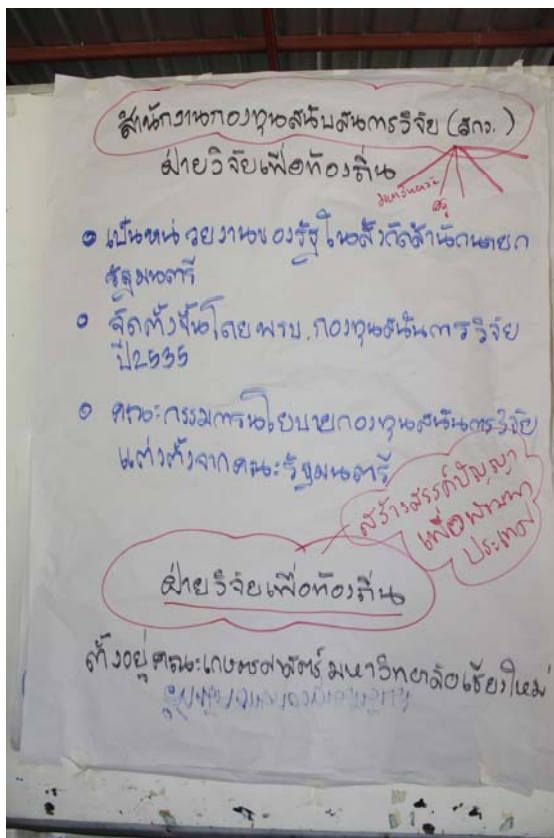 สำนักงานกองทุนสนับสนุนการวิจัย (สกว.)
ฝ่ายวิจัยเพื่อท้องถิ่น
เป็นหน่วยงานของรัฐในสังกัดสำนักนายก
รัฐมนตรี
จัดตั้งขึ้นโดย พรบ. กองทุนสนับการวิจัย
ปี2535
คณะกรรมการนโยบายกองทุนสนับการวิจัย
แต่งตั้งจากคณะรัฐมนตรี
สร้างสรรค์ปัญญา
เพื่อพัฒนา
ประเทศ
ฝ่ายวิจัยเพื่อท้องถิ่น
ตั้งอยู่คณะเกษตรศาสตร์ มหาวิทยาลัยเชียงใหม่